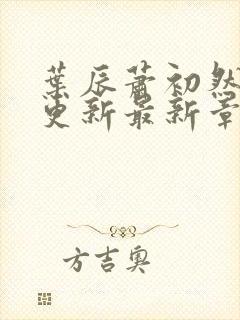 葉辰蕭初然
更新最新章
方吉奥